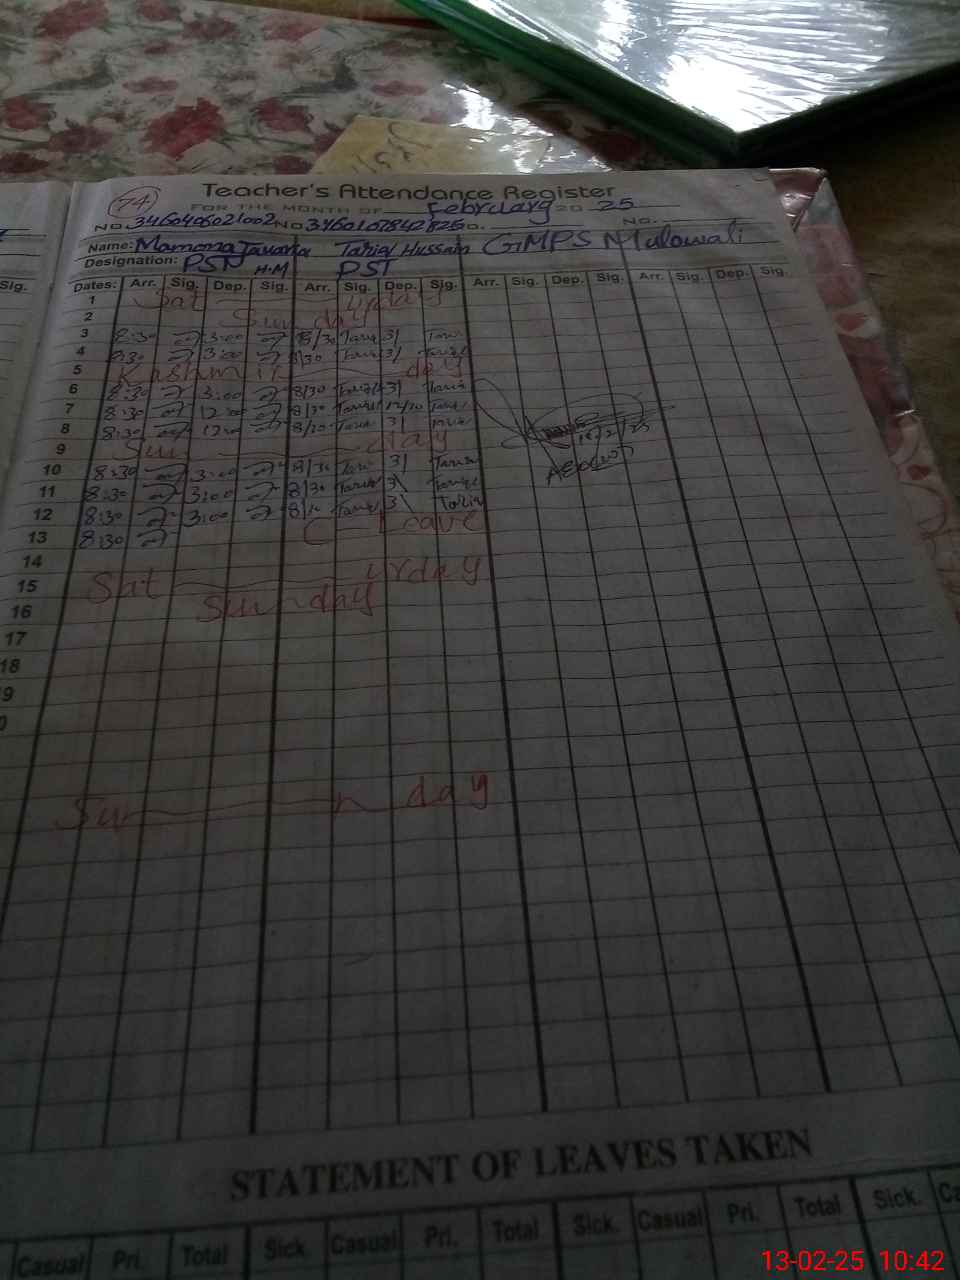 74
Teacher's Attendance Register
FOR THE MONTH OF February 20 25
No. 3460406021002 No 3460107842825 No. No.
Name: Mamona Tariq Hussain GMPS Malowali
Designation: PST H.M PST
Sig. Dates: Arr. Sig. Dep. Sig. Arr. Sig. Dep. Sig. Arr. Sig. Dep. Sig. Arr. Sig. Dep. Sig.
1 Sat urday
2 Sun day
3 8:30 3:00 8/30 Tariq 3/ Tariq
4 8:30 3:00 8/30 Tariq 3/ Tariq
5 Kashmir day
6 8:30 3:00 8/30 Tariq 3/ Tariq
7 8:30 12:00 8/30 Tariq Tariq
8 8:30 8/30 Tariq 3/ Tariq
9 Sun day
10 8:30 3:00 8/30 Tariq 3/ Tariq
11 8:30 3:00 8/30 Tariq 3 Tariq
12 8:30 3:00 Tariq 3 Tariq
13 8:30 C Leave
14
15 Sat urday
16 Sunday
17
18
9
0
Sun n day
STATEMENT OF LEAVES TAKEN
Casual Pri. Total Sick. Casual Pri. Total Sick. Casual Pri. Total Sick. Ca
13-02-25 10:42